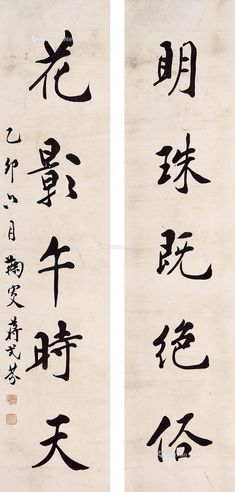 明珠既绝俗
花影午時天
乙卯六月鞠叟蒋式芬